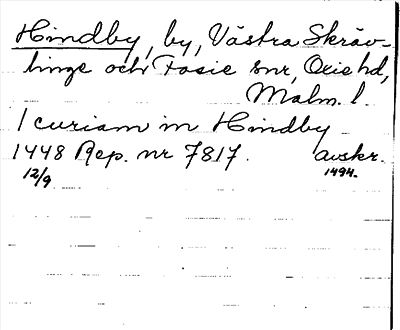 Hindby, by, Västra Skräv-
linge och Fosie snr, Oxie hd,
Malm. l.
1 curiam in Hindby
1448 Rep. nr 7817. avskr.
12/9 1494.